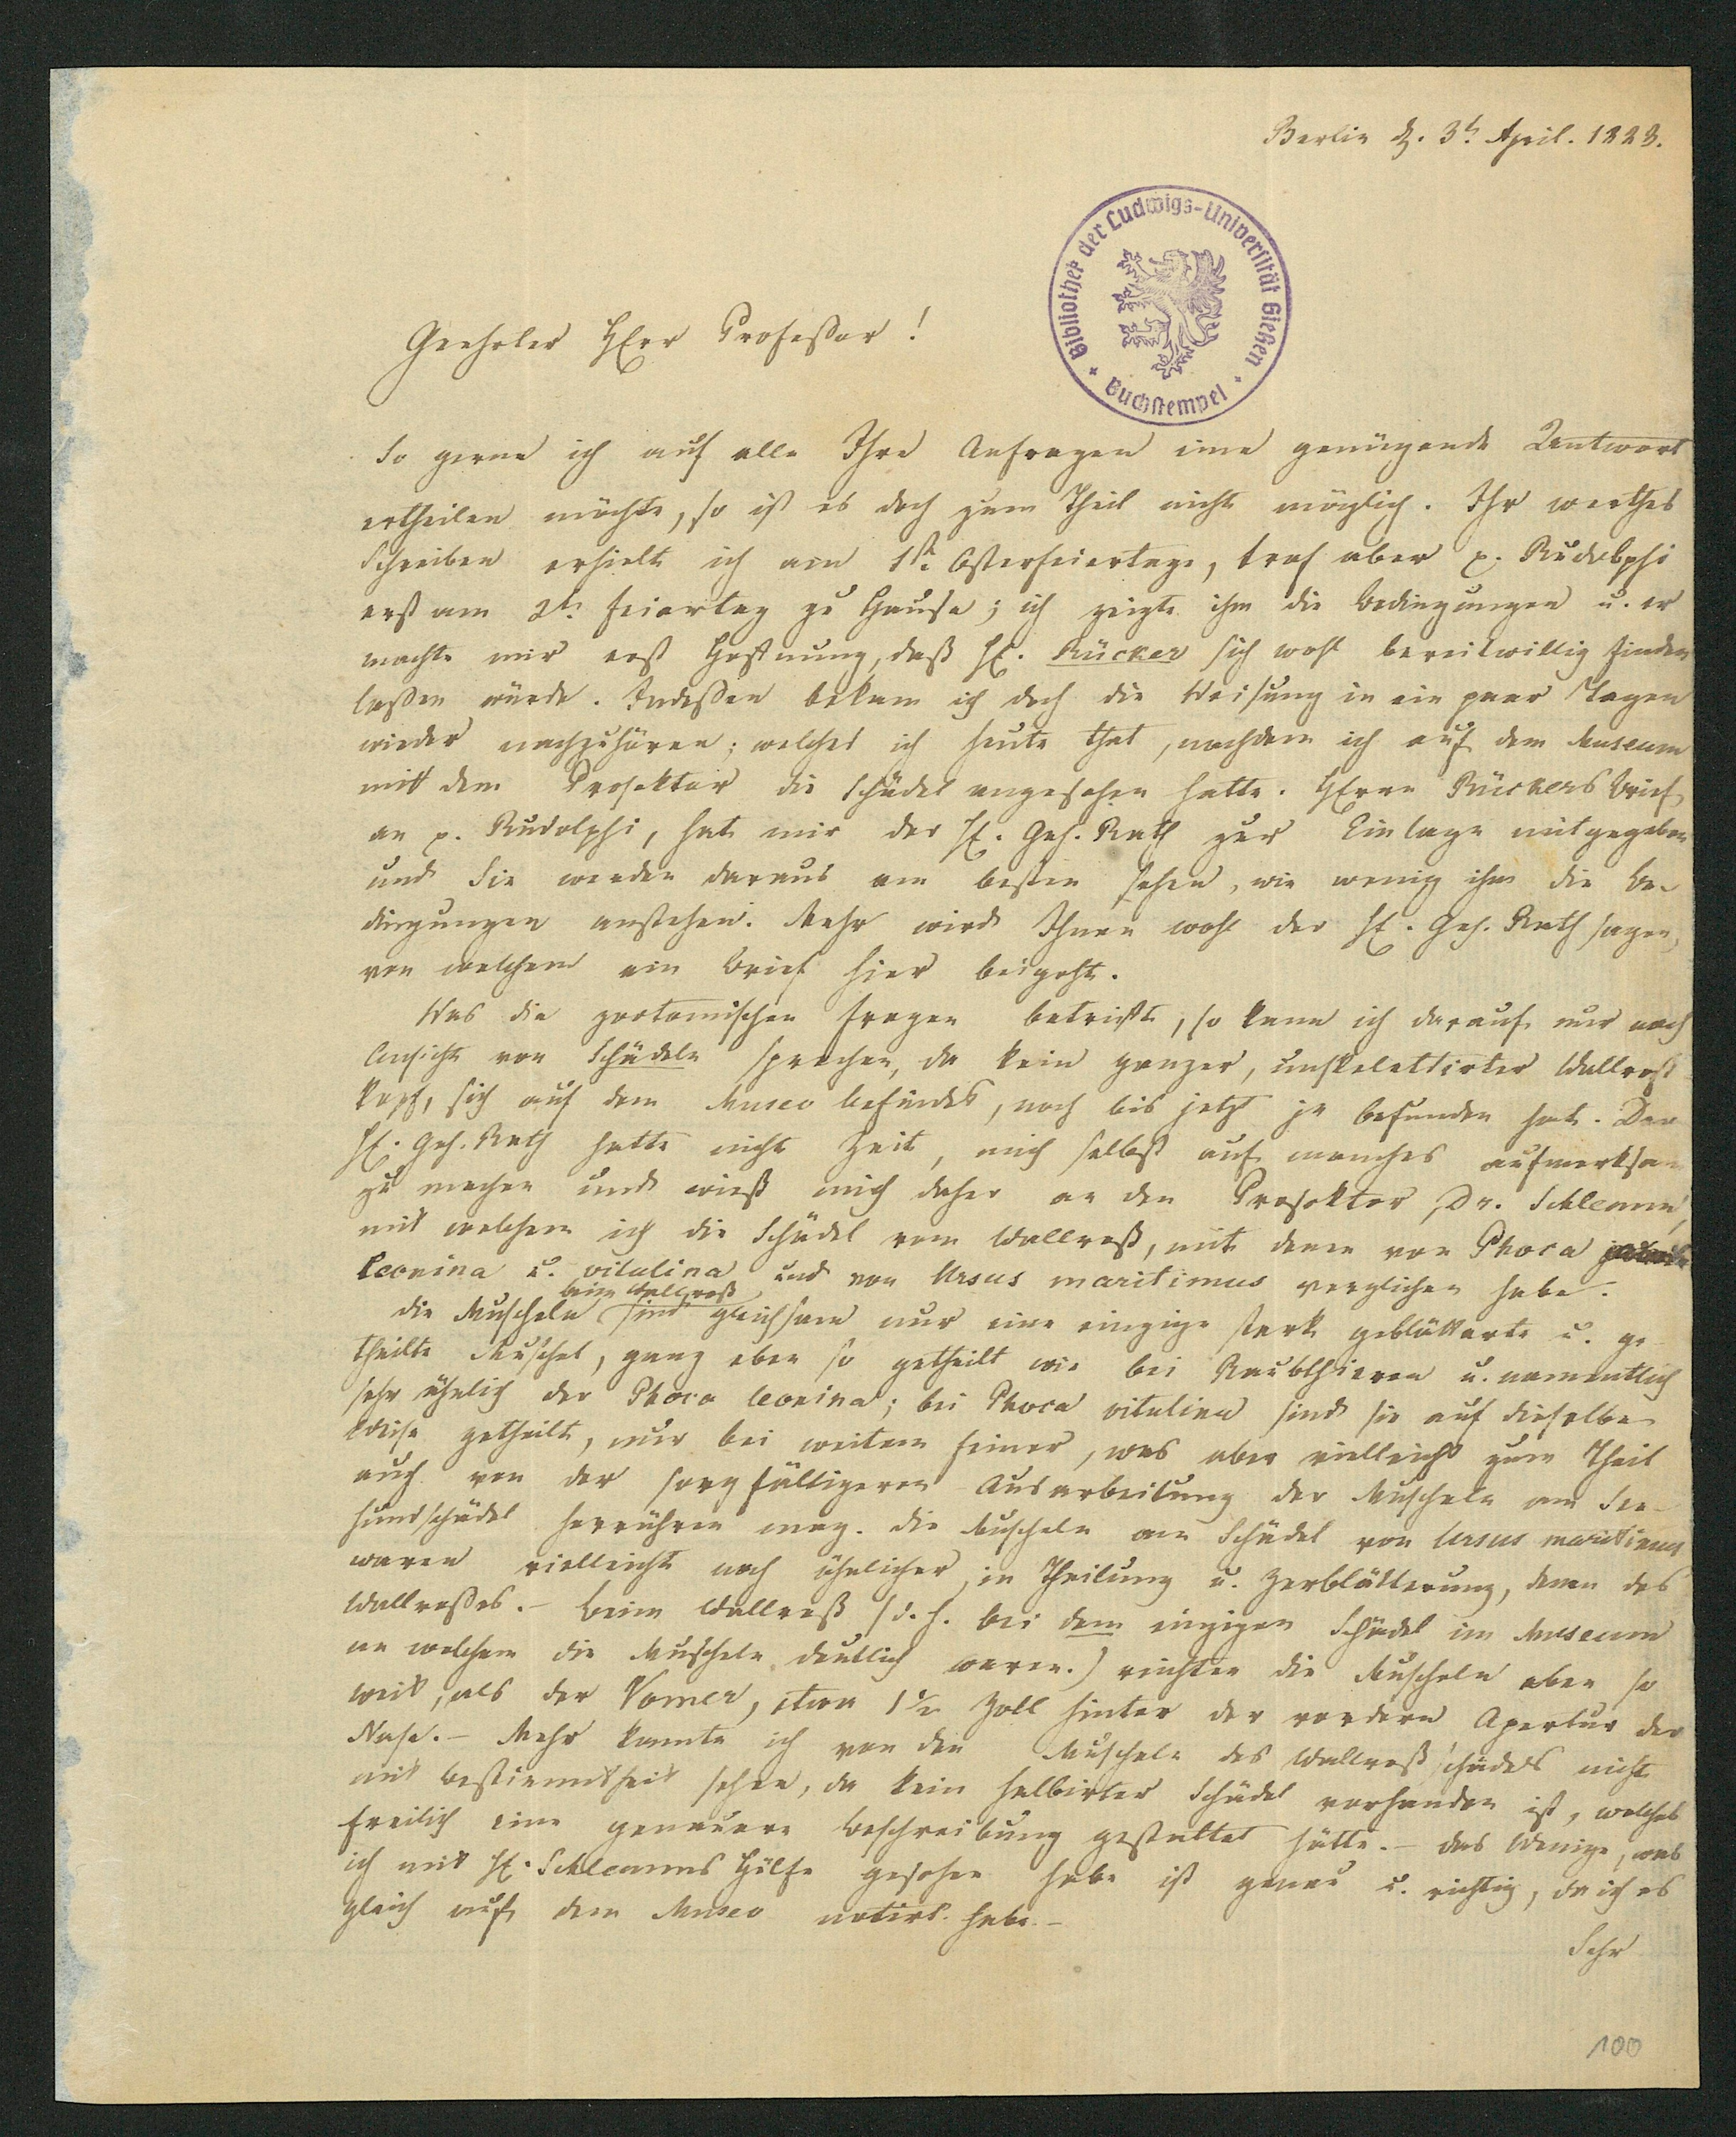 Berlin d. 3t. April. 1823.
Bibliothek der Ludwigs-Universität Gießen
Buchstempel
Geehrter HErr Professor!
So gerne ich auf alle Ihre Anfragen eine genügende Antwort
ertheilen möchte, so ist es doch zum Theil nicht möglich. Ihr werthes
Schreiben erhielt ich am 1st. Osterfeiertage, traf aber p. Rudolphi
erst am 2t. Feiertag zu Hause; ich zeigte ihm die Bedingungen u. er
machte mir erst Hoffnung, daß H. Rücker sich wohl bereitwillig finden
laßen würde. Indeßen bekam ich doch die Weisung in ein paar Tagen
wieder nachzuhören; welches ich heute that, nachdem ich auf dem Museum
mit dem Prosektor die Schädel angesehen hatte. HErrn Rückers Brief
an p. Rudolphi, hat mir der H. Geh. Rath zur Einlage mitgegeben
und Sie werden daraus am besten sehen, wie wenig ihm die Be-
dingungen anstehen. Mehr wird Ihnen wohl der H. Geh. Rath sagen,
von welchem ein Brief hier beigeht.
Was die zootomischen Fragen betrifft, so kann ich darauf nur nach
Ansicht von Schädeln sprechen, da kein ganzer, unskelettirter Wallroß
kopf, sich auf dem Museo befindet, noch bis jetzt je befunden hat. Der
H. Geh. Rath hatte nicht Zeit, mich selbst auf manches aufmerksam
zu machen und wieß mich daher an den Prosektor Dr. Schlemm,
mit welchem ich die Schädel vom Wallroß, mit denen von Phoca
leonina u. vitulina und von Ursus maritimus verglichen habe.
beim Wallroß
Die Muscheln sind gleichsam nur eine einzige stark geblätterte u. ge-
theilte Muschel, ganz eben so getheilt wie bei Raubthieren u. namentlich
sehr ähnlich der Phoca leonina; bei Phoca vitulina sind sie auf dieselbe
Weise getheilt, nur bei weitem feiner, was aber vielleicht zum Theil
auch von der sorgfältigeren Ausarbeitung der Muscheln am See-
hundschädel herrühren mag. Die Muscheln am Schädel von Ursus maritimus
waren vielleicht noch ähnlicher, in Theilung u. Zerblätterung, denen des
Wallroßes. - Beim Wallroß (d. h. bei dem einzigen Schädel im Museum
an welchem die Muscheln deutlich waren.) reichten die Muscheln eben so
weit, als der Vomer, etwa 1½ Zoll hinter der vordern Apertur der
Nase. - Mehr konnte ich von den Muscheln des Wallroßschädels nicht
mit Bestimmtheit sehen, da kein halbirter Schädel vorhanden ist, welches
freilich eine genauere Beschreibung gestattet hätte. - Das Wenige, was
ich mit H. Schlemms Hülfe gesehen habe ist genau u. richtig, da ich es
gleich auf dem Museo notirt habe. -
Sehr
100